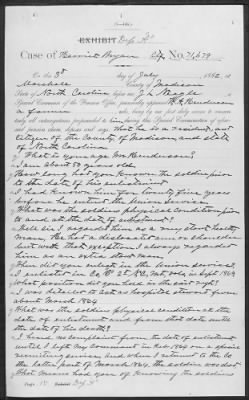 EXHIBIT Dep A
Case of Harriet Bryan Ctf., No. 71,679
On this 3d day of July 1882, at
Marshall County of Madison
State of North Carolina before me, J. L. Neagle
Special Examiner of the Pension Office, personally appeared Henderson
a farmer who, being by me first duly sworn to answer
truly all interrogatories propounded to him during this Special Examination of afore-
said pension claim, deposes and says: that he is a resident, and
citizen of the County of Madison and State
of North Carolina
Q What is your age Mr Henderson?
A I am about 50 years old.
Q How long had you known the soldier prior
to the date of his enlistment
A I had known him for twenty five years
before he enterd the Union Service
Q What was the soldiers physical condition prior
to and at the date of enlistment?
A Well sir I regarded him as a very stout healthy
man. He had a dislocated arm or shoulder
but with that exception I always regarded
him as an extra stout man.
Q When did you enlist in the Union service?
A I enlisted in Co
Q What position did you hold in the
A I was detailed to act as hospital steward from
about March 1864
Q What was the soldiers physical condition at the
date of enlistment and from that date until
the date of his death?
A I heard no complaint from the date of enlistment
until I left my command in 1864 on a
recruiting service and when I returned to the Co
the latter part of March 1864, the soldier was dead
Q What means had you of knowing the soldiers
Page 15 Dep A